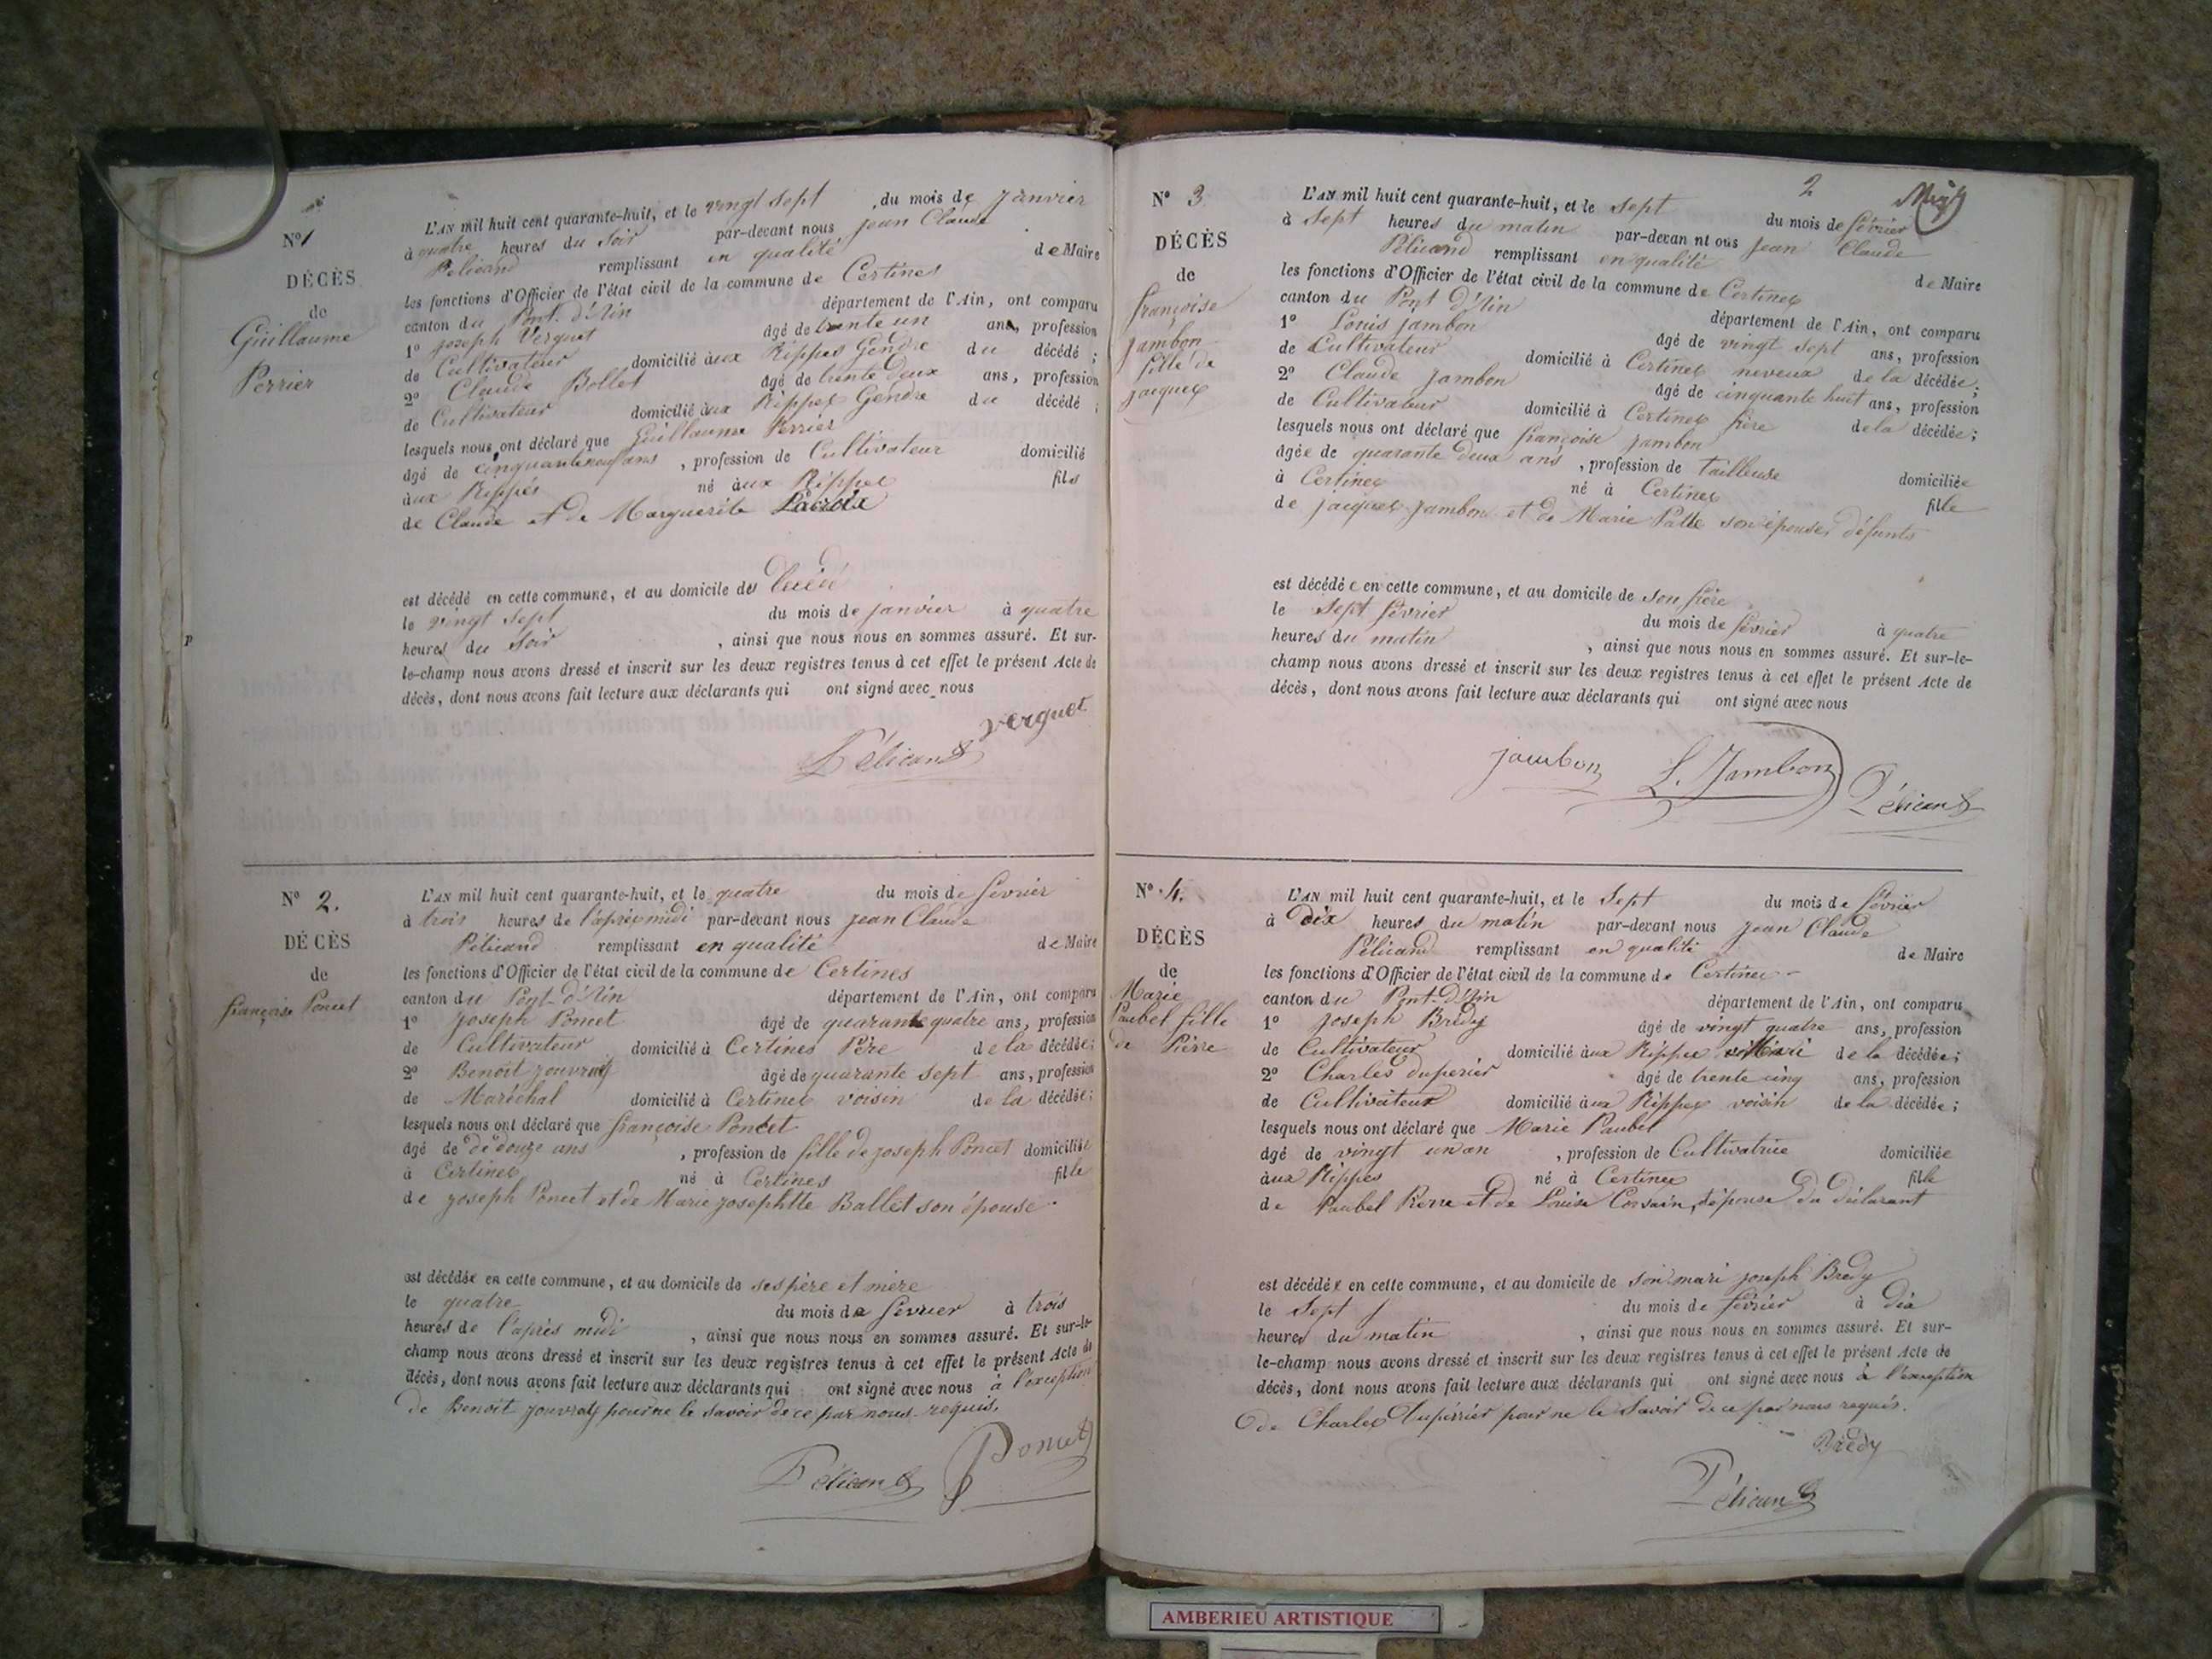 N° 1
DÉCÈS
de
Guillaume
Perrier
L'AN mil huit cent quarante-huit, et le vingt sept du mois de Janvier
à quatre heures du Soir par-devant nous jean Claude
Pélicand remplissant en qualité de Maire
les fonctions d'Officier de l'état civil de la commune de Certines
canton du Pont-d'Ain département de l'Ain, ont comparu
1° joseph Verguet âgé de trente un ans, profession
de Cultivateur domicilié aux Rippes Gendre du décédé;
2° Claude Bollet âgé de trente deux ans, profession
de Cultivateur domicilié aux Rippes Gendre du décédé;
lesquels nous ont déclaré que Guillaume Perrier
âgé de cinquante neuf ans, profession de Cultivateur domicilié
aux Rippes né aux Rippes fils
de Claude et de Marguerite
est décédé en cette commune, et au domicile du Décédé
le vingt sept du mois de janvier à quatre
heures du Soir, ainsi que nous nous en sommes assuré. Et sur-
le-champ nous avons dressé et inscrit sur les deux registres tenus à cet effet le présent Acte de
décès, dont nous avons fait lecture aux déclarants qui ont signé avec nous
verguet
Pélicand
N° 2.
DÉCÈS
de
françoise Poncet
L'AN mil huit cent quarante-huit, et le quatre du mois de février
à trois heures de l'après midi par-devant nous jean Claude
Pélicand remplissant en qualité de Maire
les fonctions d'Officier de l'état civil de la commune de Certines
canton du Pont-d'Ain département de l'Ain, ont comparu
1° Joseph Poncet âgé de quarante quatre ans, profession
de Cultivateur domicilié à Certines Père de la décédée;
2° Benoit jouvray âgé de quarante sept ans, profession
de Maréchal domicilié à Certines voisin de la décédée;
lesquels nous ont déclaré que françoise Poncet
âgé de de douze ans, profession de fille de joseph Poncet domiciliée
à Certines né à Certines fille
de joseph Poncet et de Marie josephtte Ballet son épouse.
est décédée en cette commune, et au domicile de ses père et mère
le quatre du mois de février à trois
heures de l'après midi, ainsi que nous nous en sommes assuré. Et sur-le-
champ nous avons dressé et inscrit sur les deux registres tenus à cet effet le présent Acte de
décès, dont nous avons fait lecture aux déclarants qui ont signé avec nous à l'exception
de Benoit jouvray pour ne le savoir de ce par nous requis.
Pélicand Poncet
2
N° 3
DÉCÈS
de
françoise
jambon
fille de
jacques
L'AN mil huit cent quarante-huit, et le sept du mois de février
à sept heures du matin par-devan nt ous jean Claude
Pélicand remplissant en qualité de Maire
les fonctions d'Officier de l'état civil de la commune de Certines
canton du Pont d'Ain département de l'Ain, ont comparu
1° Louis jambon âgé de vingt sept ans, profession
de Cultivateur domicilié à Certines neveux de la décédée;
2° Claude jambon âgé de cinquante huit ans, profession
de Cultivateur domicilié à Certines frère de la décédée;
lesquels nous ont déclaré que françoise jambon
âgée de quarante deux ans, profession de tailleuse domiciliée
à Certines né à Certines fille
de jacques jambon et de Marie Patte son épouse, défunts
est décédée en cette commune, et au domicile de son frère
le sept février du mois de février à quatre
heures du matin, ainsi que nous nous en sommes assuré. Et sur-le-
champ nous avons dressé et inscrit sur les deux registres tenus à cet effet le présent Acte de
décès, dont nous avons fait lecture aux déclarants qui ont signé avec nous
jambon L. Jambon Pélicand
N° 4.
DÉCÈS
de
Marie
Paubel fille
de Pierre
L'AN mil huit cent quarante-huit, et le Sept du mois de février
à dix heures du matin par-devant nous jean Claude
Pélicand remplissant en qualité de Maire
les fonctions d'Officier de l'état civil de la commune de Certines
canton du Pont-d'Ain département de l'Ain, ont comparu
1° joseph Bredy âgé de vingt quatre ans, profession
de Cultivateur domicilié aux Rippes Mari de la décédée;
2° Charles duperier âgé de trente cinq ans, profession
de Cultivateur domicilié aux Rippes voisin de la décédée;
lesquels nous ont déclaré que Marie Paubel
âgé de vingt un an, profession de Cultivatrice domiciliée
aux Rippes né à Certines fille
de Paubel Pierre et de Louise Corsain, épouse du déclarant
est décédée en cette commune, et au domicile de son mari joseph Bredy
le Sept du mois de février à dix
heures du matin, ainsi que nous nous en sommes assuré. Et sur-
le-champ nous avons dressé et inscrit sur les deux registres tenus à cet effet le présent Acte de
décès, dont nous avons fait lecture aux déclarants qui ont signé avec nous à l'exception
de Charles Dupérrier pour ne le Savoir de ce par nous requis.
Bredy
Pélicand
AMBERIEU ARTISTIQUE